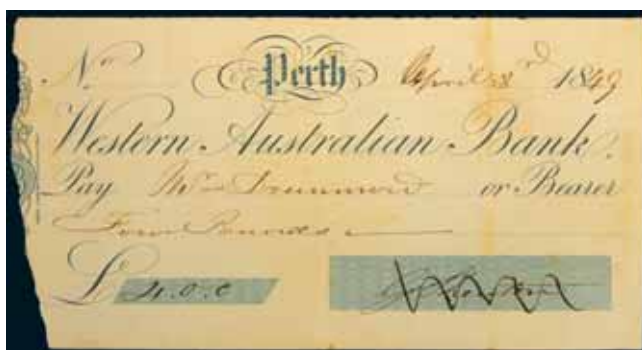 No Perth April 1849
Western Australian Bank.
Pay Mr Drummond or Bearer
Four Pounds
£ 4.0.0